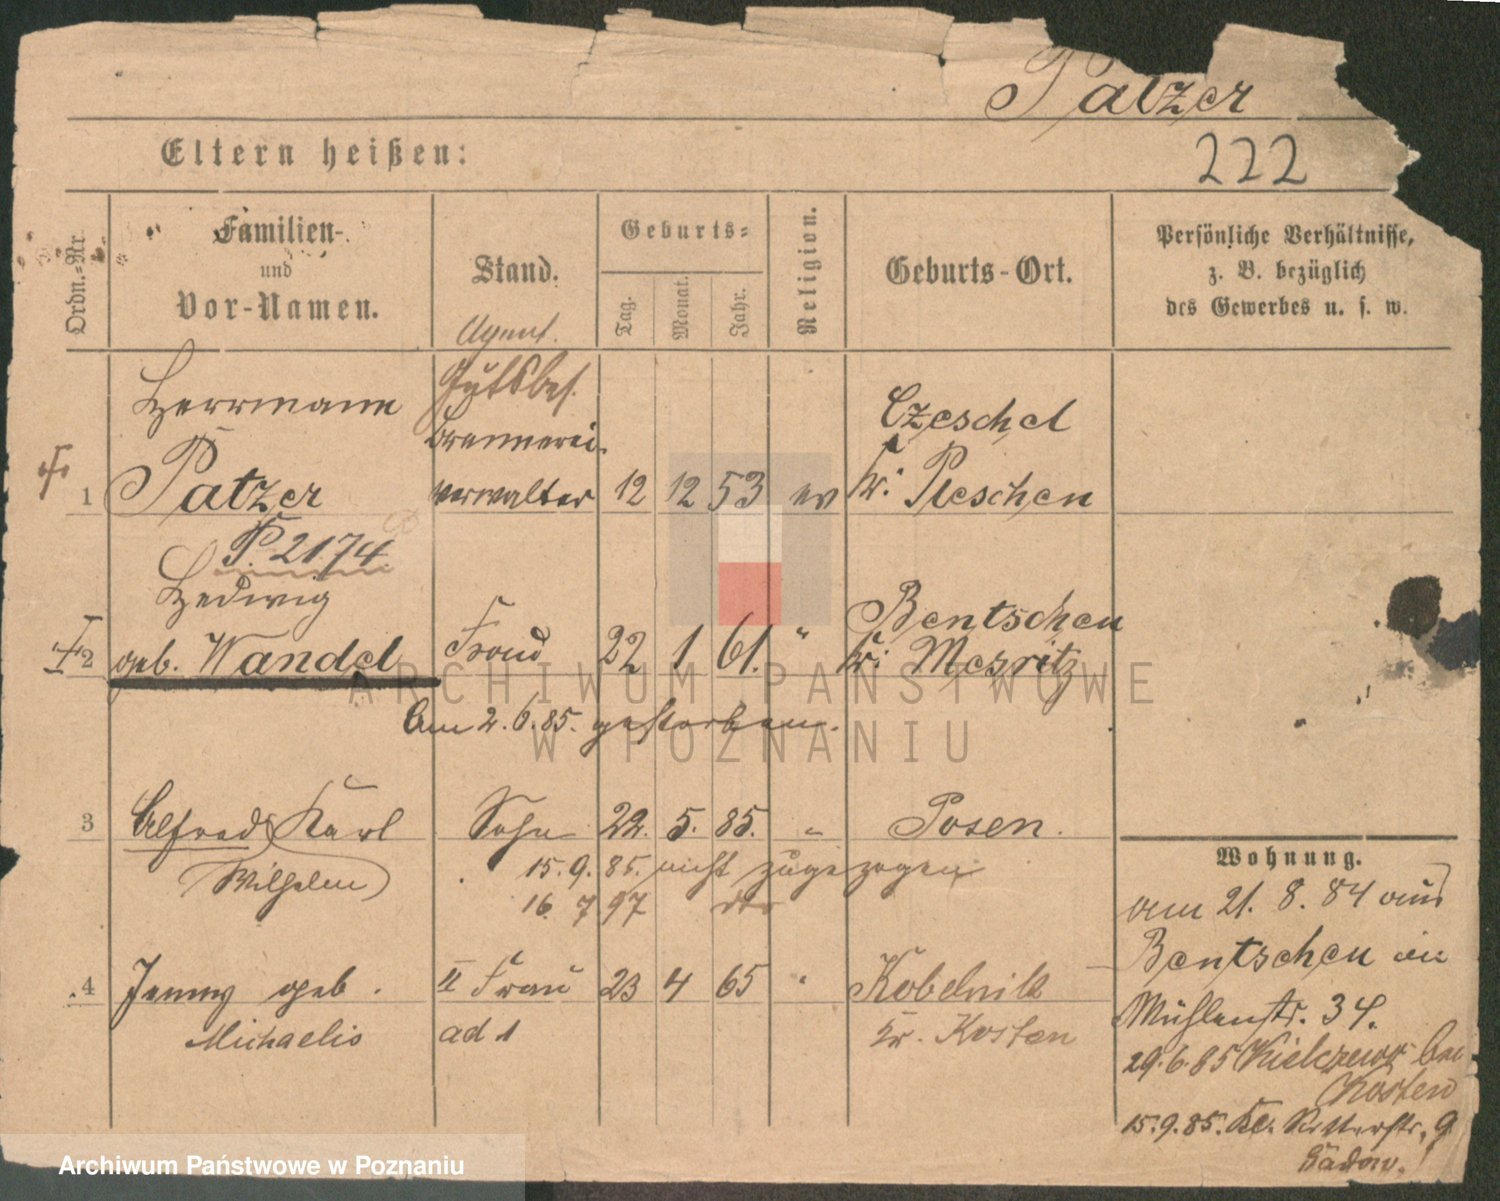 Patzer
222
Eltern heißen:
Ordn.-Nr.
Familien-
und
Vor-Namen.
Stand.
Geburts-
Tag.
Monat.
Jahr.
Religion.
Geburts-Ort.
Persönliche Verhältnisse,
z. B. bezüglich
des Gewerbes u. s. w.
Agent.
Herrmann Gutsbes. Czeschel
Brennerei-
1 Patzer verwalter 12 12 53 ev Kr: Pleschen
P. 2174.
Hedwig Bentschen
2 geb. Wandel Frau 22 1 61. " Kr: Mesritz
Am 2. 6. 85. gestorben.
3 Alfred Karl Sohn 22. 5. 85. " Posen.
(Wilhelm) 15. 9. 85. nicht zugezogen
16. 7 97 dto
4 Jenny geb. II Frau 23 4 65 " Kobelnik
Michaelis ad 1 Kr. Kosten
Wohnung.
am 21. 8. 84 aus
Bentschen in
Mühlenstr. 34.
29. 6. 85 Kielczewo bei
Kosten
15. 9. 85. Kl. Ritterstr. 9
ARCHIWUM PAŃSTWOWE
W POZNANIU
Archiwum Państwowe w Poznaniu